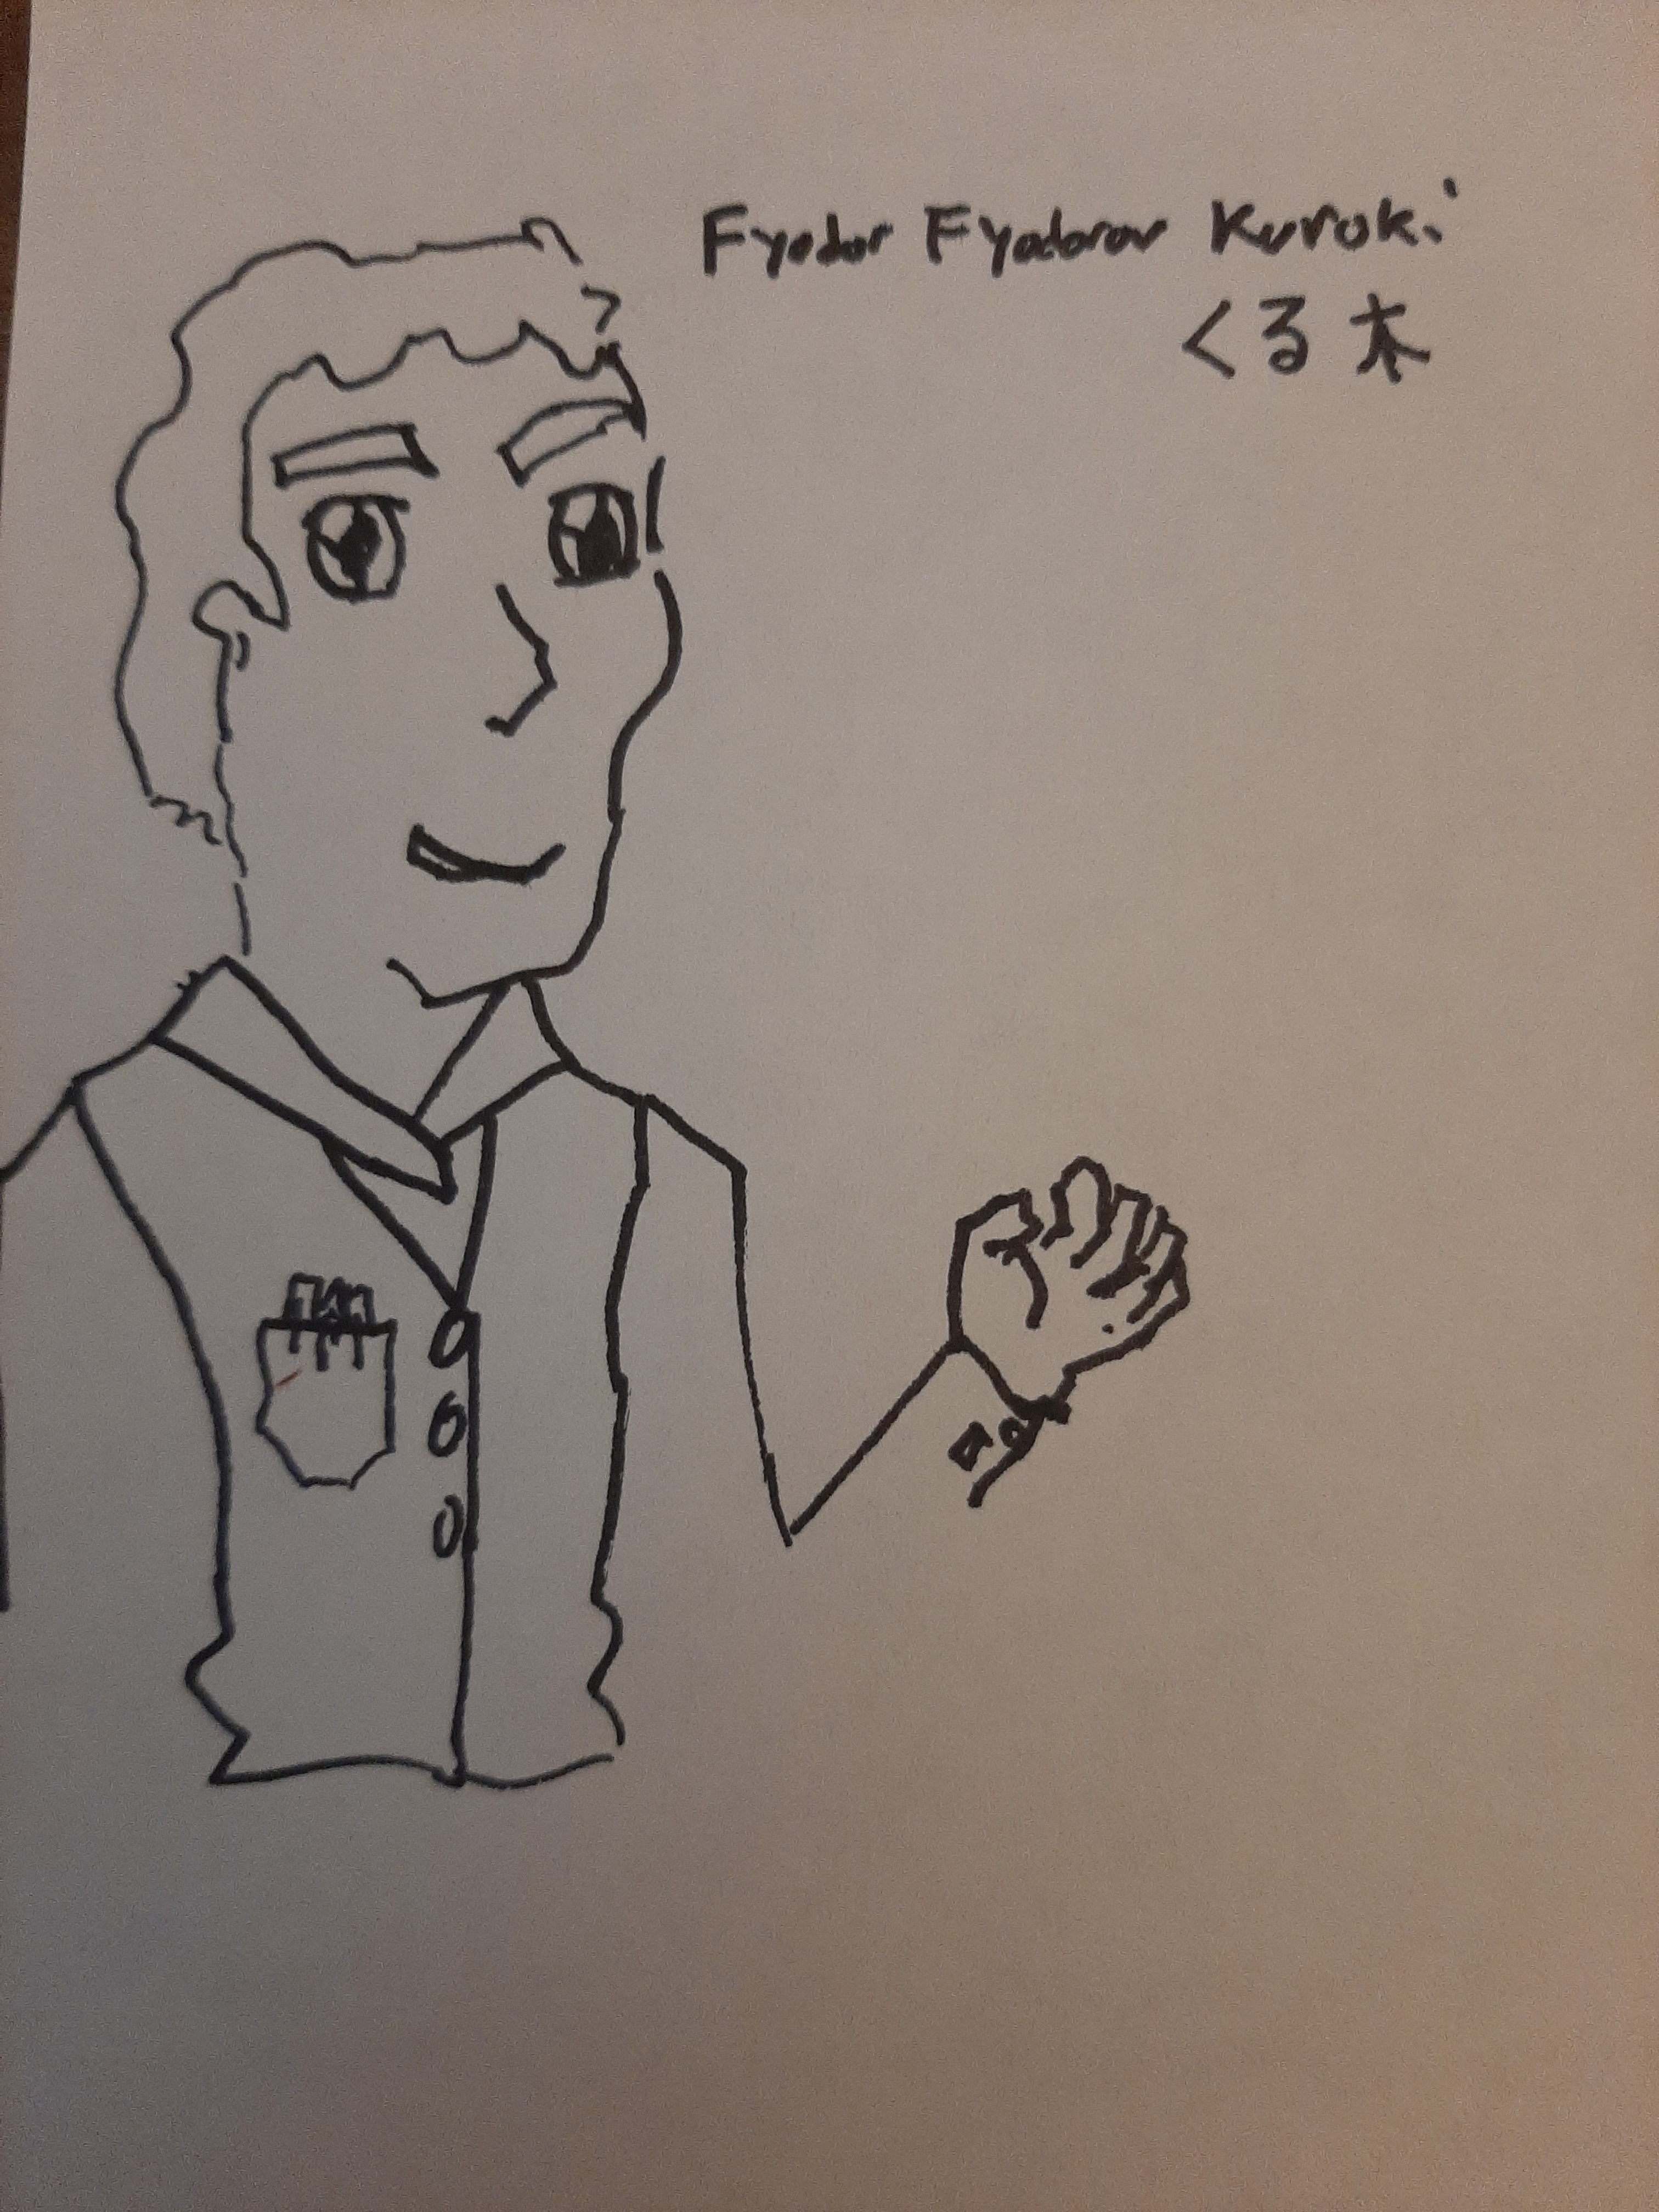 Fyodor Fyodorov Kuroki
くる木